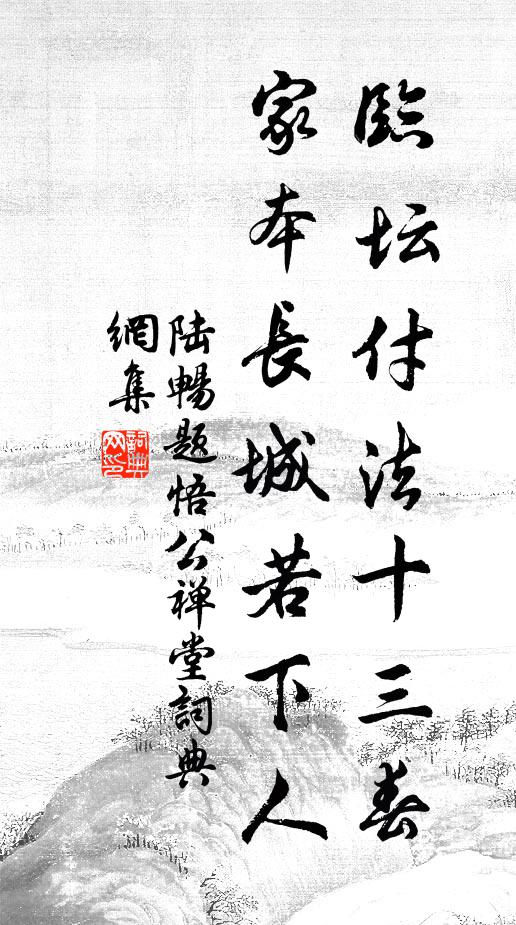 臨坛付法十三春
家本長城若下人
陆暢題悟公禅堂詞典
網集
詞典网印